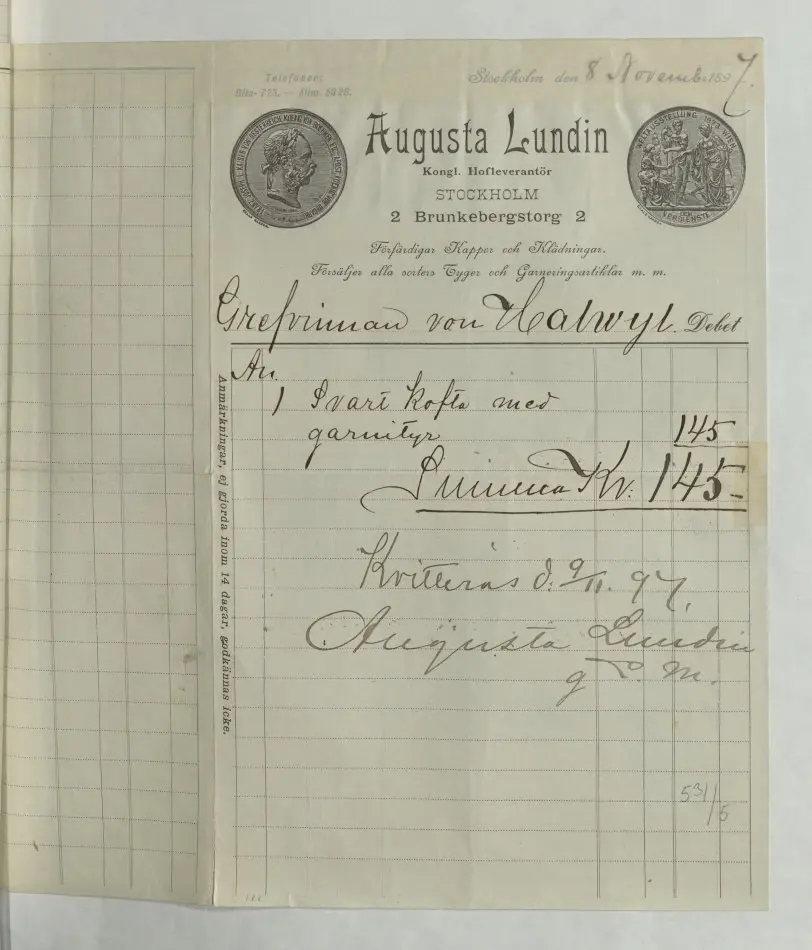 Telefoner:
Stockholm den 8 November 1897.
Augusta Lundin
Kongl. Hofleverantör
STOCKHOLM
2 Brunkebergstorg 2
Förfärdigar Kappor och Klädningar.
Försäljer alla sorters Tyger och Garneringsartiklar m. m.
WELTAUSSTELLUNG 1873 WIEN
DEM VERDIENSTE
Grefvinnan von Halwyl. Debet
An.
1 Svart Kofta med
garnityr 145
Summa Kr. 145-
Kvitteras d. 9/11. 97.
Augusta Lundin
g M.
Anmärkningar, ej gjorda inom 14 dagar, godkännas icke.
531/5